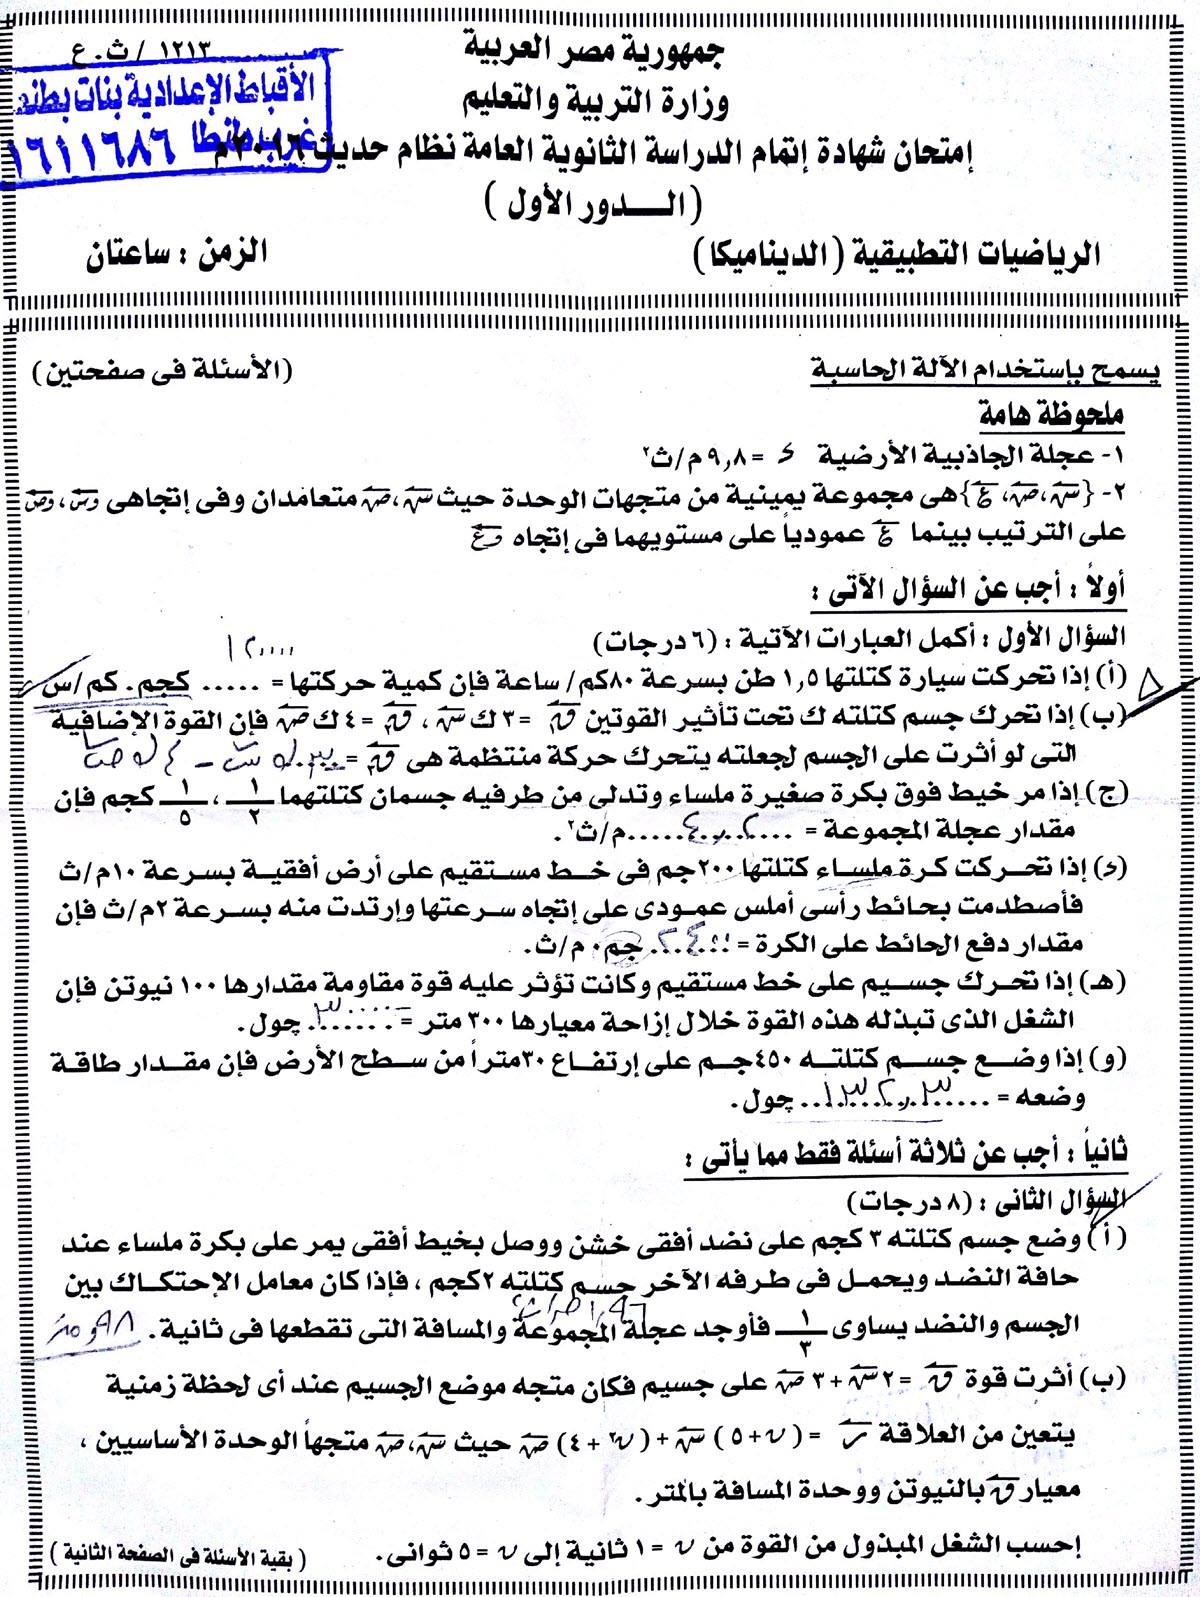 ١٢١٣ / ث.ع
جمهورية مصر العربية
وزارة التربية والتعليم
الأقباط الإعدادية بنات بطنطا
غرب طنطا ١٦١١٦٨٦
إمتحان شهادة إتمام الدراسة الثانوية العامة نظام حديث ٢٠١٦م
(الـــدور الأول)
الرياضيات التطبيقية (الديناميكا)
الزمن : ساعتان
يسمح بإستخدام الآلة الحاسبة
(الأسئلة فى صفحتين)
ملحوظة هامة
١- عجلة الجاذبية الأرضية ء = ٩,٨ م/ث٢
٢- {س، ص، ع} هى مجموعة يمينية من متجهات الوحدة حيث س، ص متعامدان وفى إتجاهى وس، وص
على الترتيب بينما ع عمودياً على مستويهما فى إتجاه وع
أولاً : أجب عن السؤال الآتى :
السؤال الأول : أكمل العبارات الآتية : (٦ درجات)
١٢٠٠٠٠
(أ) إذا تحركت سيارة كتلتها ١,٥ طن بسرعة ٨٠كم/ ساعة فإن كمية حركتها = ..... كجم. كم/س
(ب) إذا تحرك جسم كتلته ك تحت تأثير القوتين ق = ٣ ك س ، ق = ٤ ك ص فإن القوة الإضافية
التى لو أثرت على الجسم لجعلته يتحرك حركة منتظمة هى ق = -٣ ك س - ٤ ك ص
(ج) إذا مر خيط فوق بكرة صغيرة ملساء وتدلى من طرفيه جسمان كتلتهما ١/٢ ، ١/٥ كجم فإن
مقدار عجلة المجموعة = ٤,٢ م/ث٢.
(ء) إذا تحركت كرة ملساء كتلتها ٢٠٠جم فى خط مستقيم على أرض أفقية بسرعة ١٠م/ث
فأصطدمت بحائط رأسى أملس عمودى على إتجاه سرعتها وإرتدت منه بسرعة ٢م/ث فإن
مقدار دفع الحائط على الكرة = ٢٤٠٠ جم. م/ث.
(هـ) إذا تحرك جسيم على خط مستقيم وكانت تؤثر عليه قوة مقاومة مقدارها ١٠٠ نيوتن فإن
الشغل الذى تبذله هذه القوة خلال إزاحة معيارها ٣٠٠ متر = -٣٠٠٠٠ چول.
(و) إذا وضع جسم كتلته ٤٥٠جم على إرتفاع ٣٠متراً من سطح الأرض فإن مقدار طاقة
وضعه = ١٣٢,٣ چول.
ثانياً : أجب عن ثلاثة أسئلة فقط مما يأتى :
السؤال الثانى : (٨ درجات)
(أ) وضع جسم كتلته ٣ كجم على نضد أفقى خشن ووصل بخيط أفقى يمر على بكرة ملساء عند
حافة النضد ويحمل فى طرفه الآخر جسم كتلته ٢كجم ، فإذا كان معامل الإحتكاك بين
١,٩٦ م/ث٢
الجسم والنضد يساوى ١/٣ فأوجد عجلة المجموعة والمسافة التى تقطعها فى ثانية. ٩٨, متر
(ب) أثرت قوة ق = ٢ س + ٣ ص على جسيم فكان متجه موضع الجسيم عند أى لحظة زمنية
يتعين من العلاقة ر = (ن + ٥) س + (ن٢ + ٤) ص حيث س، ص متجهاً الوحدة الأساسيين ،
معيار ق بالنيوتن ووحدة المسافة بالمتر.
إحسب الشغل المبذول من القوة من ن = ١ ثانية إلى ن = ٥ ثوانى.
(بقية الأسئلة فى الصفحة الثانية)